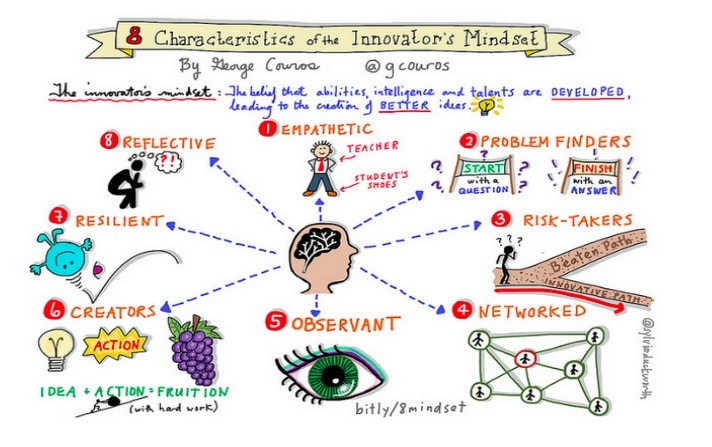 8 Characteristics of the Innovator's Mindset
By George Couros @gcouros
The innovator's mindset : The belief that abilities, intelligence and talents are DEVELOPED,
leading to the creation of BETTER ideas.
1 EMPATHETIC
TEACHER
STUDENT'S
SHOES
2 PROBLEM FINDERS
?
START
with a
QUESTION
FINISH
with an
ANSWER
3 RISK-TAKERS
? ? ?
Beaten Path
INNOVATIVE PATH
4 NETWORKED
5 OBSERVANT
6 CREATORS
ACTION
IDEA + ACTION = FRUITION
(with hard work)
7 RESILIENT
8 REFLECTIVE
?!
bitly/8mindset
@sylviaduckworth